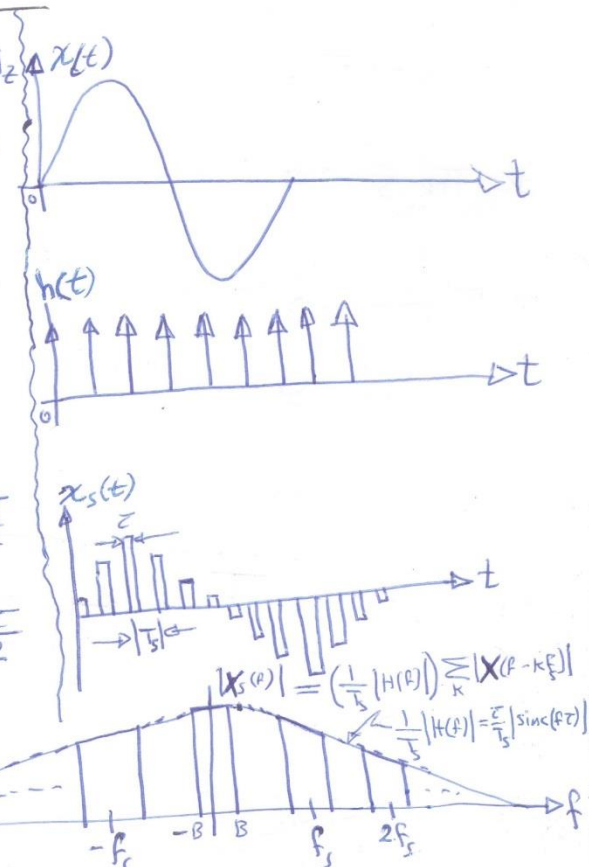 x(t)
0
t
h(t)
0
t
x_s(t)
τ
t
T_s
|X_s(f)| = (1/T_s |H(f)|) Σ_k |X(f-kf_s)|
1/T_s |H(f)| = τ/T_s |sinc(fτ)|
-f_s -B B f_s 2f_s f